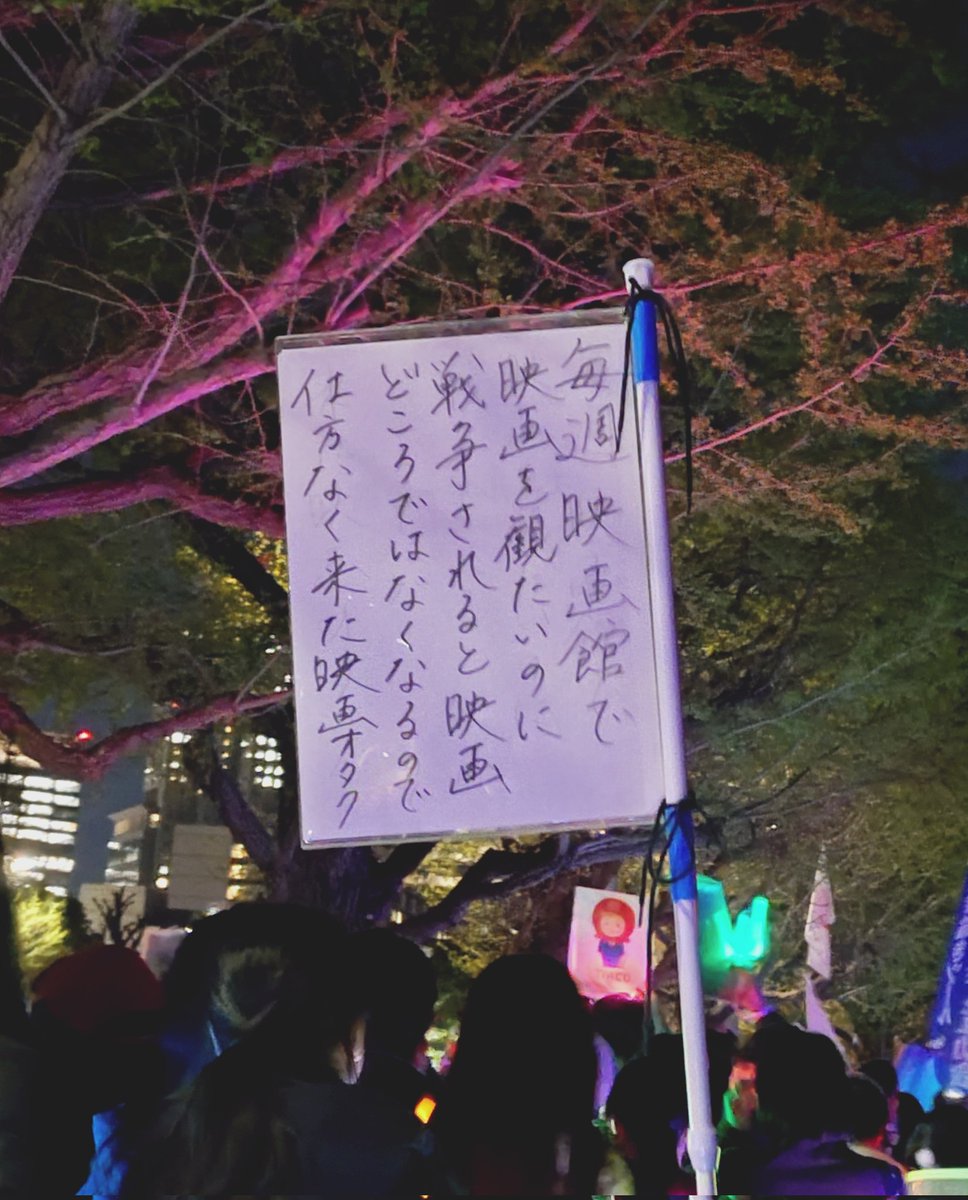 毎週 映画館で
映画を観たいのに
戦争されると映画
どころではなくなるので
仕方なく来た映画オタク